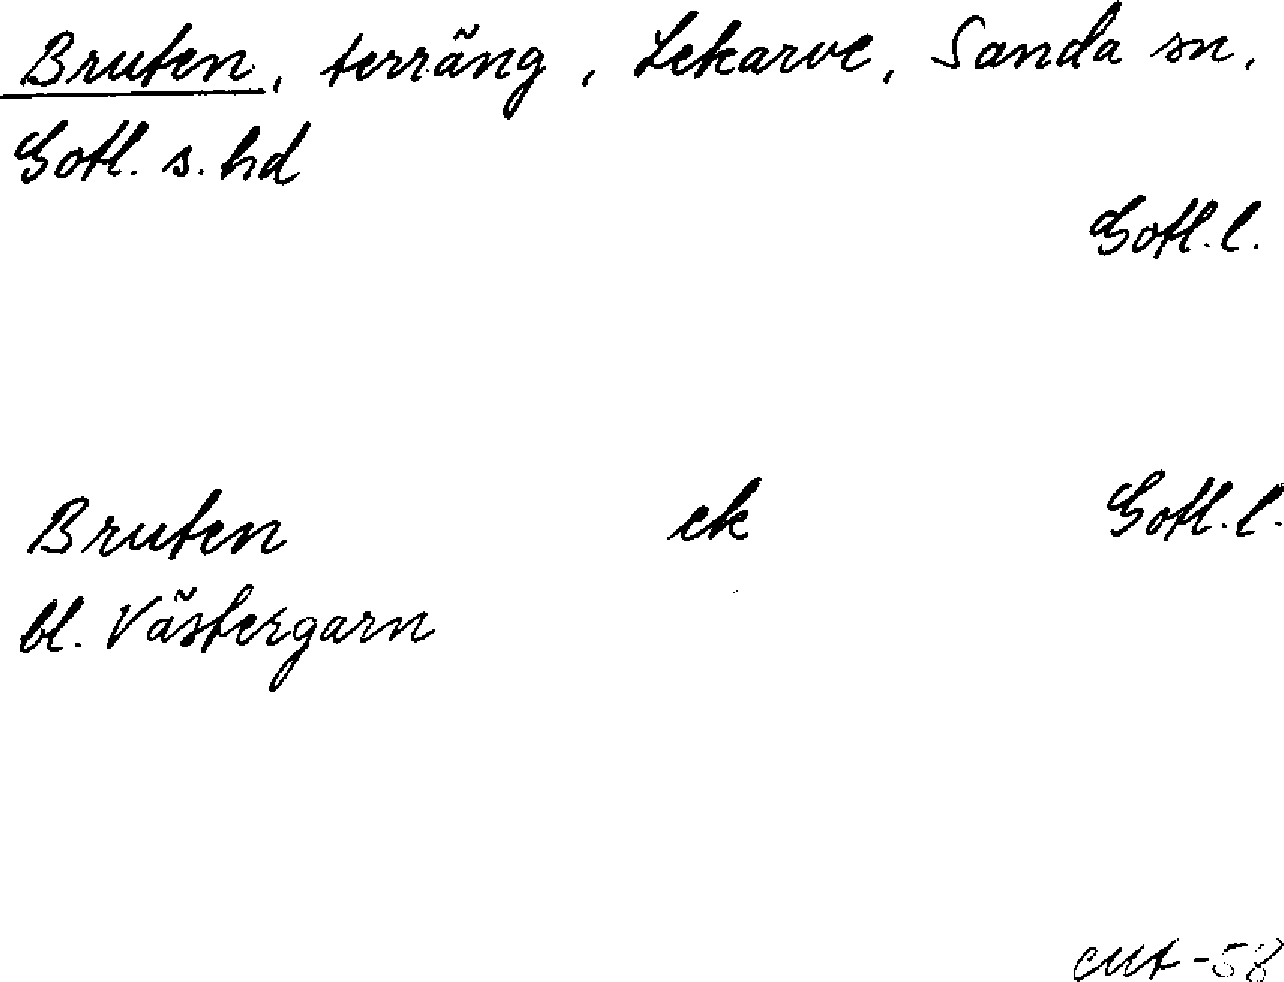 Bruten, terräng, Lekarve, Sanda sn,
Gotl. s. hd
Gotl. l.
Bruten ek Gotl. l.
bl. Västergarn
-58